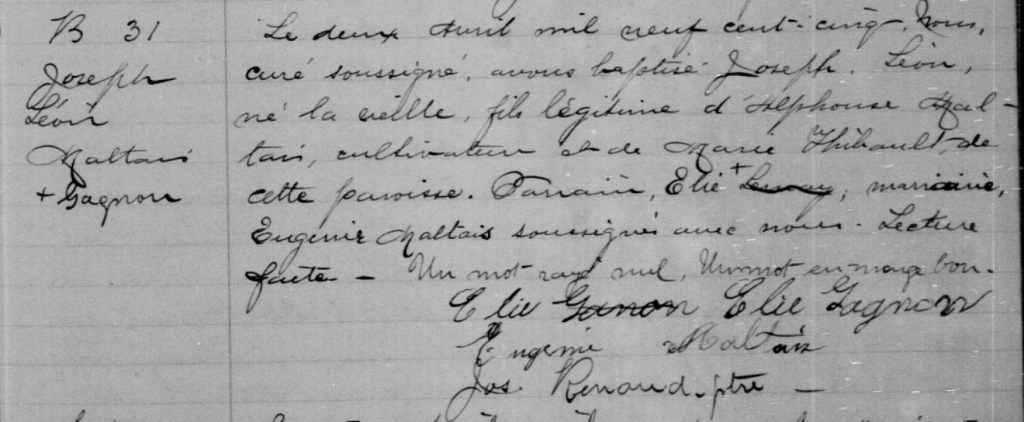 B 31
Joseph
Léon
Maltais
+ Gagnon
Le deux Avril mil neuf cent-cinq, Nous,
curé soussigné, avons baptisé Joseph, Léon,
né la veille, fils légitime d'Alphonse Mal-
tais, cultivateur et de Marie Thibault, de
cette paroisse. Parrain, Elie +, marraine,
Eugénie Maltais soussignés avec nous. Lecture
faite - Un mot rayé nul, Un mot en marge bon.
Elie Ganon Elie Gagnon
Eugenie Maltais
Jos Renaud, ptre -